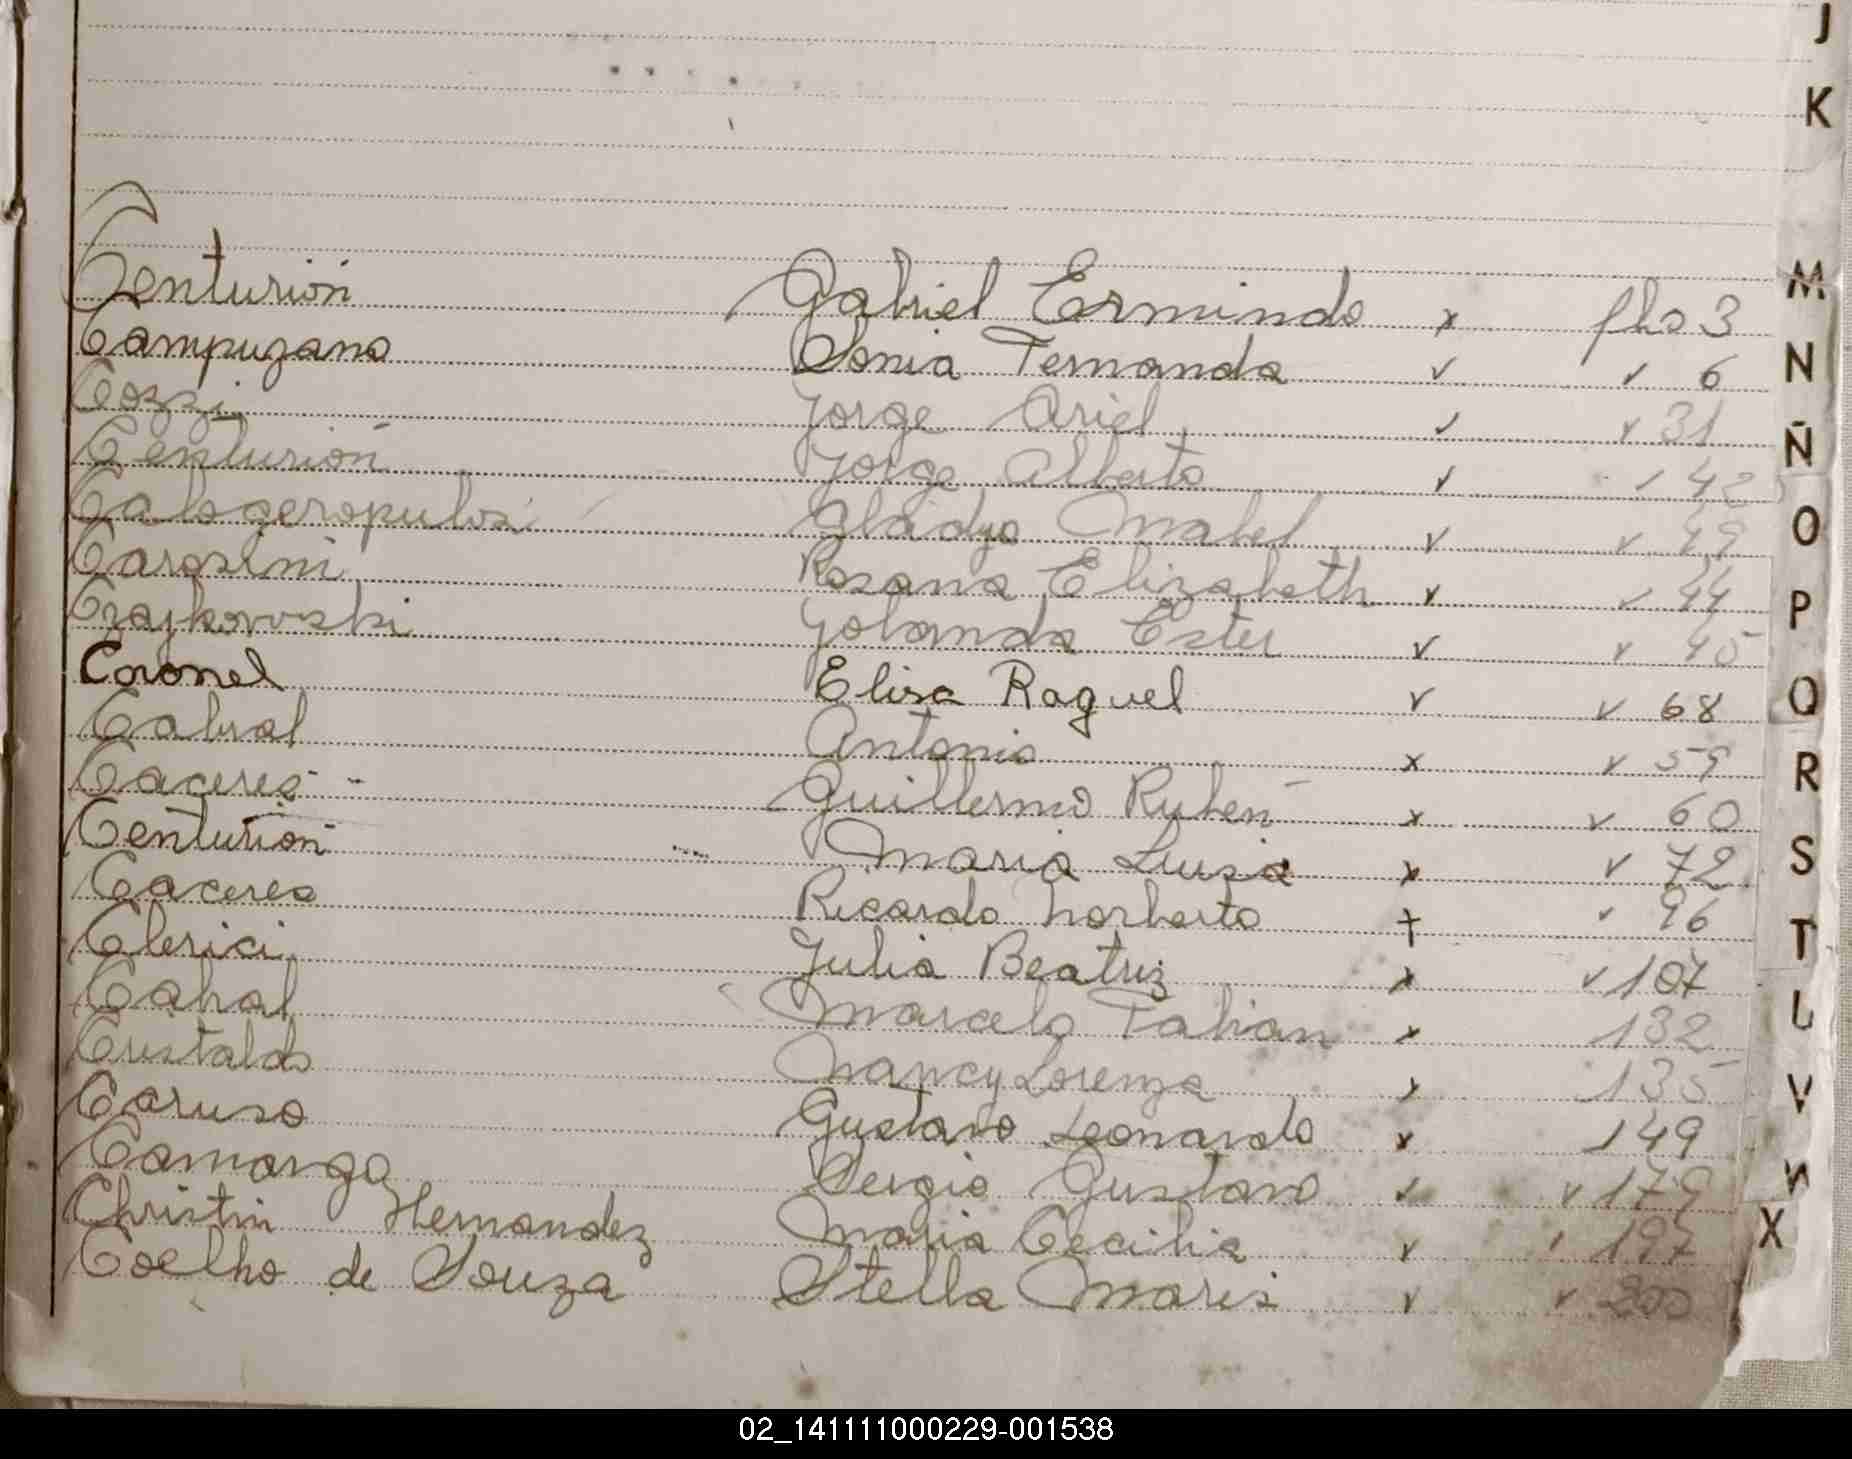 J
K
Centurión Gabriel Ermindo x fhs 3
Campuzano Sonia Fernanda v v 6
Cozzi Jorge Ariel v v 31
Centurión Jorge Alberto v v 42
Calogeropulos Gladys Mabel v v 49
Carosini Rosana Elizabeth v v 44
Czajkovski Yolanda Ester v v 45
Coronel Elisa Raquel v v 68
Cabral Antonio x v 59
Caceres Guillermo Rubén x v 60
Centurión Maria Luisa x v 72
Caceres Ricardo Norberto + v 96
Clerici Julia Beatriz x v 107
Cabral Marcelo Fabian x 132
Cristaldo Nancy Lorenza x 135
Caruso Gustavo Leonardo x 149
Camargo Sergio Gustavo v v 179
Christin Hernandez Maria Cecilia v v 197
Coelho de Souza Stella Maris v v 200
M
N
Ñ
O
P
Q
R
S
T
U
V
W
X
02_141111000229-001538